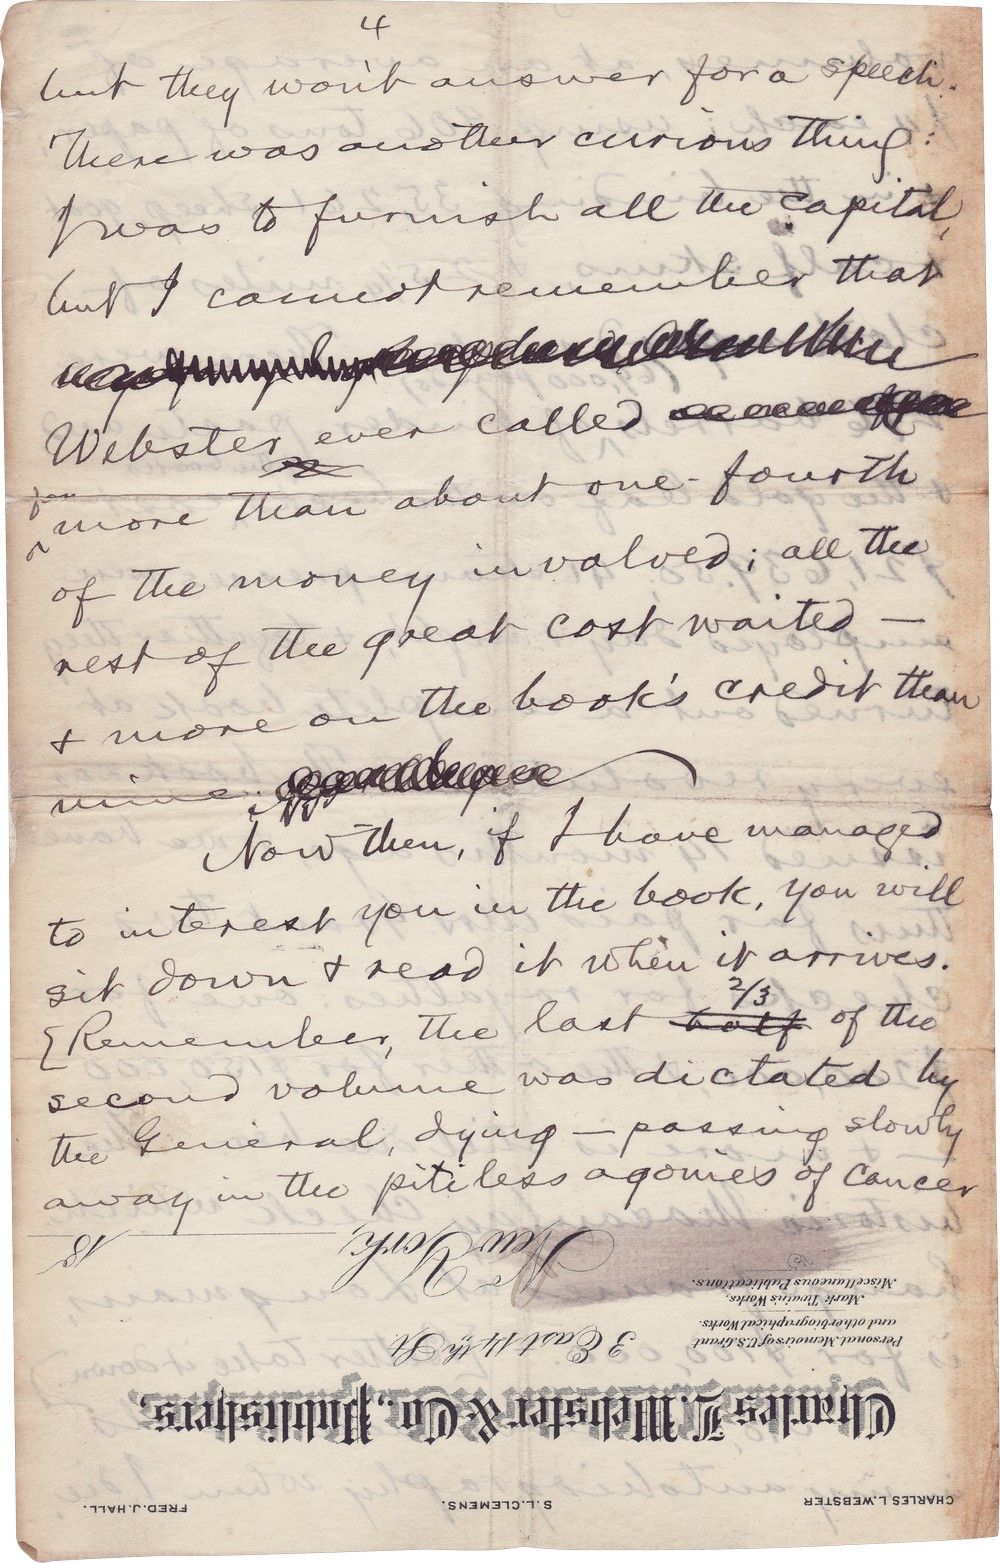 4
but they won't answer for a speech.
There was another curious thing:
I was to furnish all the capital,
but I cannot remember that
Webster ever called
for
more than about one-fourth
of the money involved; all the
rest of the great cost waited —
& more on the book's credit than
mine.
Now then, if I have managed
to interest you in the book, you will
sit down & read it when it arrives.
2/3
[Remember, the last half of the
second volume was dictated by
the General, dying — passing slowly
away in the pitiless agonies of cancer
CHARLES L. WEBSTER S. L. CLEMENS. FRED. J. HALL.
Charles L. Webster & Co., Publishers,
3 East 14th St
Personal Memoirs of U.S. Grant
and other biographical Works.
Mark Twain's Works.
Miscellaneous Publications.
New York, 18